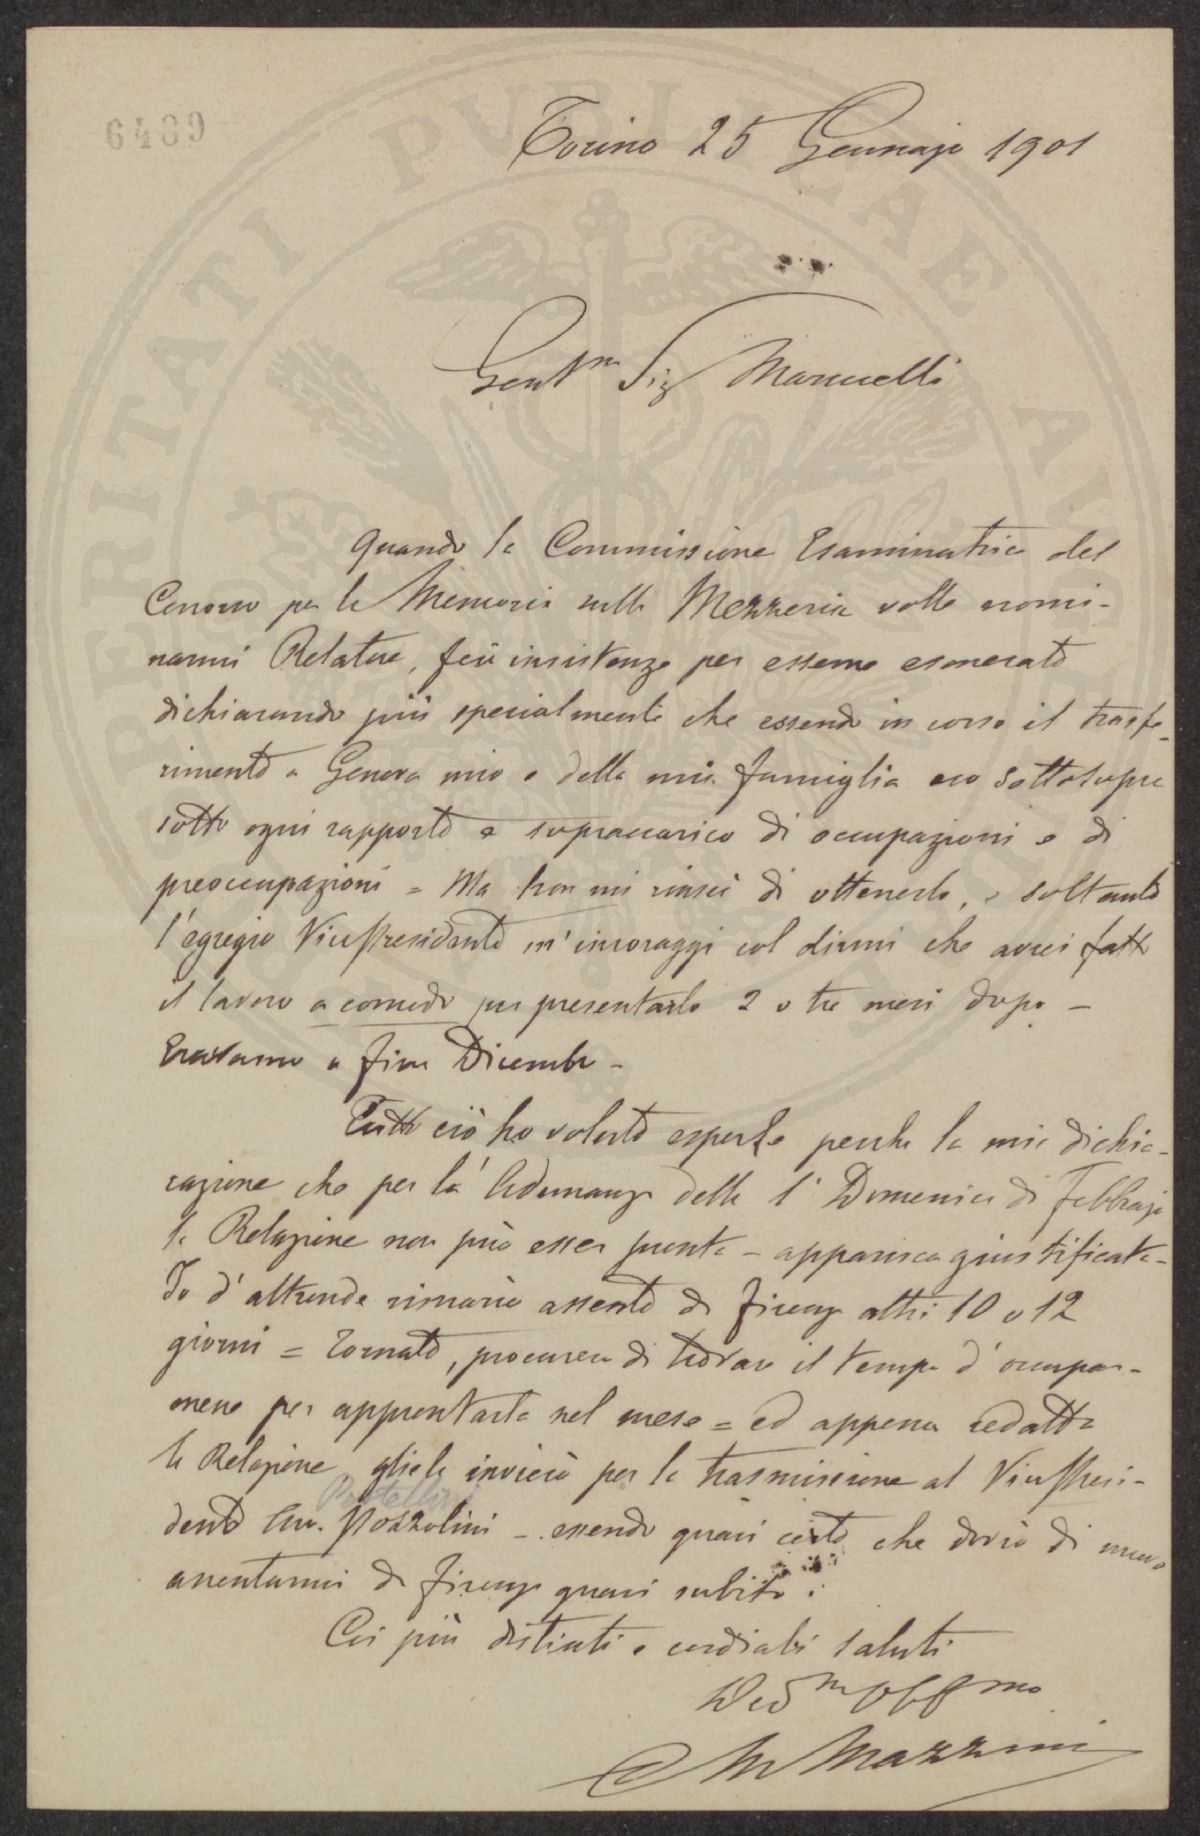 6489
Torino 25 Gennajo 1901
Gentmo Sig Marucelli
Quando la Commissione Esaminatrice del
Concorso per le Memorie sulla Mezzeria volle nomi-
narmi Relatore, feci insistenze per esserne esonerato
dichiarando più specialmente che essendo in corso il trasfe-
rimento a Genova mio e della mia famiglia ero sottosopra
sotto ogni rapporto e sopraccarico di occupazioni e di
preoccupazioni = Ma non mi riuscì di ottenerlo, e soltanto
l'egregio Vice Presidente m'incoraggi col dirmi che avrei fatto
il lavoro a comodo per presentarlo 2 o tre mesi dopo -
Eravamo a fine Dicembre -
Tutto ciò ho voluto esporle perchè la mia dichia-
razione che per l'Adunanza della 1a Domenica di Febbrajo
la Relazione non può esser pronta - apparisca giustificata -
Io d'altronde rimarrò assente da Firenze altri 10 o 12
giorni = Tornato, procurerò di trovare il tempo d'occupar-
mene per approntarla nel mese = ed appena redatta
la Relazione gliela invierò per la trasmissione al Vice Presi-
dente Avv. Pozzolini - essendo quasi certo che dovrò di nuovo
assentarmi da Firenze quasi subito.
Coi più distinti e cordiali saluti
Devmo Obbmo
Mazzini
PROSPERITATI PVBLICAE AVGENDAE